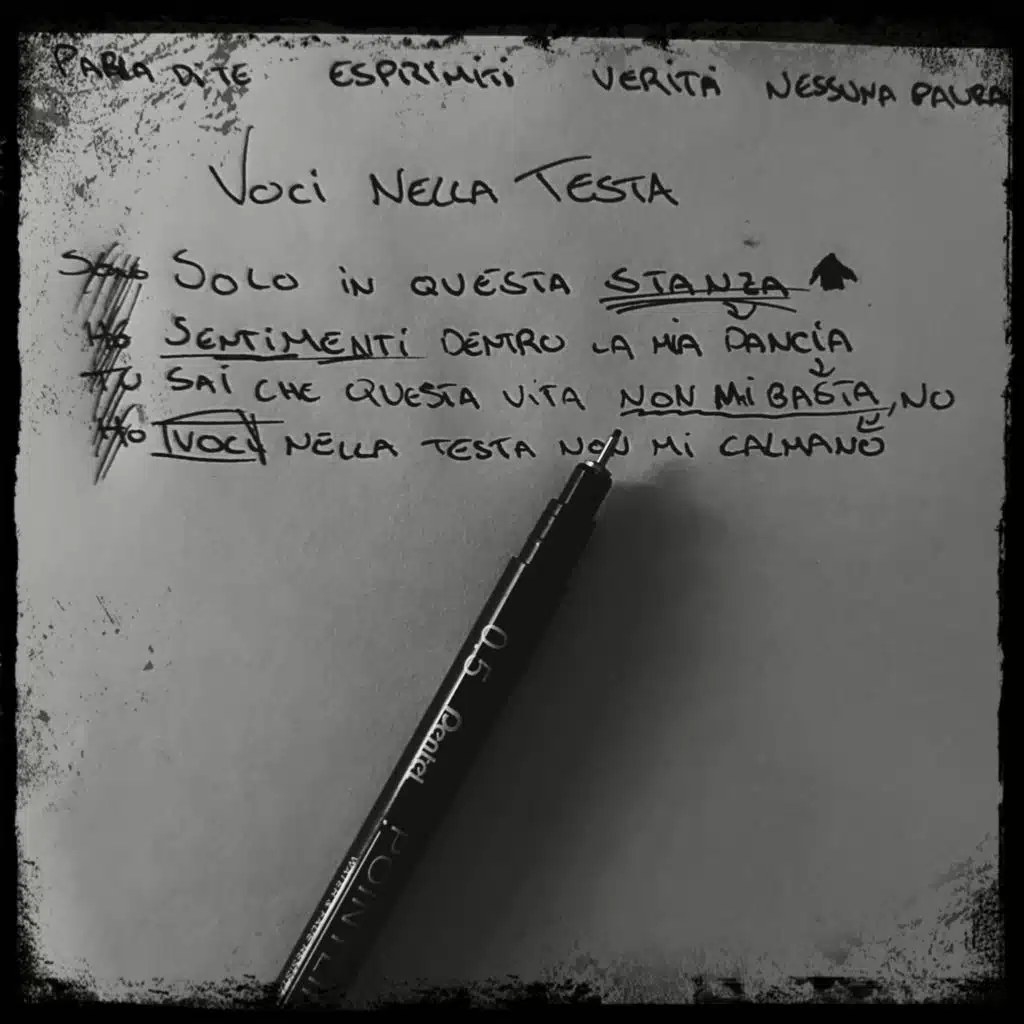 PARLA DI TE ESPRIMITI VERITÀ NESSUNA PAURA
VOCI NELLA TESTA
SOLO IN QUESTA STANZA
SENTIMENTI DENTRO LA MIA PANCIA
SAI CHE QUESTA VITA NON MI BASTA, NO
VOCI NELLA TESTA NON MI CALMANO
0.5 Pentel